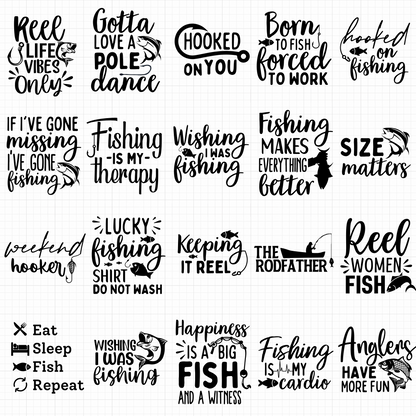 Reel
LIFE
VIBES
Only
Gotta
LOVE A
POLE
dance
HOOKED
ON YOU
Born
TO FISH
forced
TO WORK
hooked
on
fishing
IF I'VE GONE
missing
I'VE GONE
fishing
Fishing
-IS MY-
therapy
Wishing
I WAS
fishing
Fishing
MAKES
EVERYTHING
better
SIZE
matters
weekend
hooker
LUCKY
fishing
SHIRT
DO NOT WASH
Keeping
IT REEL
THE
RODFATHER
Reel
WOMEN
FISH
Eat
Sleep
Fish
Repeat
WISHING
I WAS
fishing
Happiness
IS A BIG
FISH
AND A WITNESS
Fishing
IS MY
cardio
Anglers
HAVE
MORE FUN